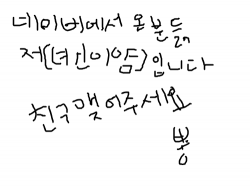 네이버에서 온분들
저(녀신이임)입니다
친구 맺어주세요
뿅